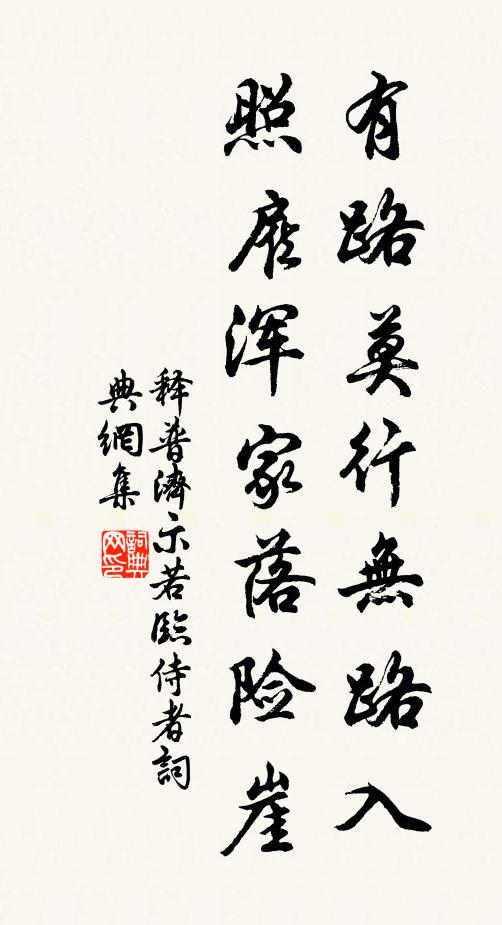 有路莫行無路入
照浑家落险崖
释普濟示若臨侍者詞
典網集
詞典
网印